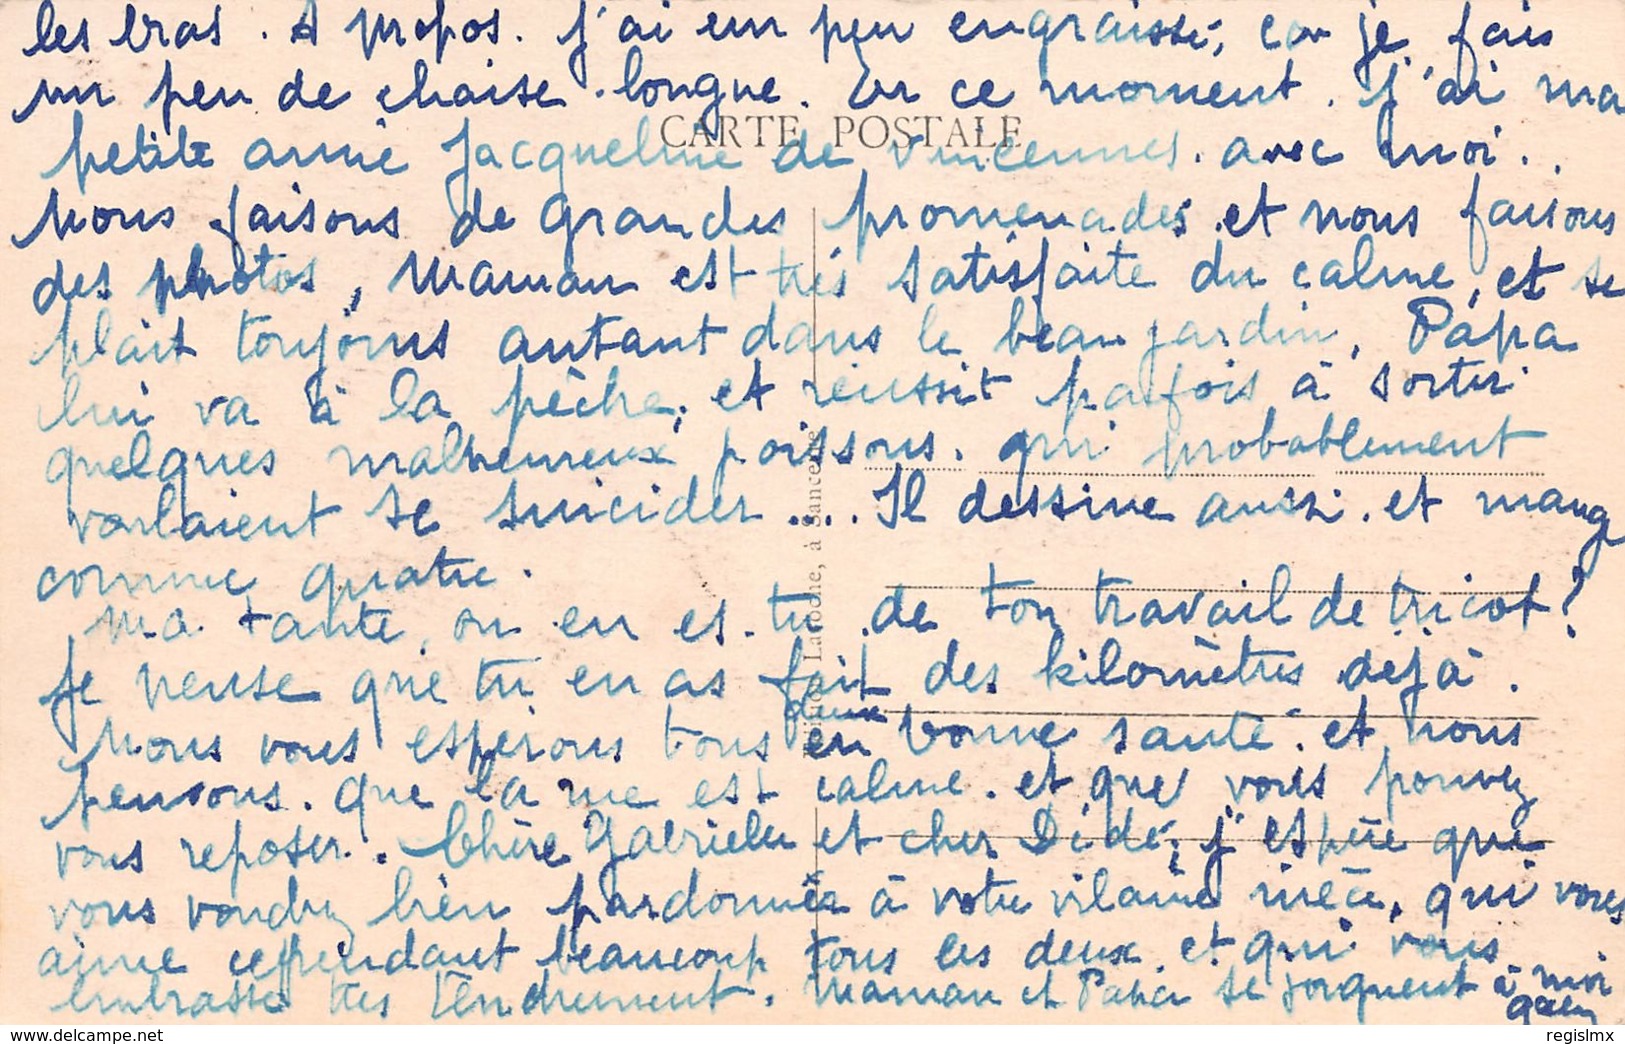 les bras. A propos. j'ai un peu engraissé, car je fais
un peu de chaise-longue. En ce moment. j'ai ma
CARTE POSTALE
petite amie Jacqueline de Vincennes. avec moi..
Nous faisons de grandes promenades et nous faisons
des photos, Maman est très satisfaite du calme, et se
plait toujours autant dans le beau jardin. Papa
lui va à la pêche, et réussit parfois à sortir
quelques malheureux poissons. qui probablement
voulaient se suicider.... Il dessine aussi. et mange
comme quatre.
Ma tante, ou en es-tu de ton travail de tricot?
Je pense que tu en as fait des kilomètres dejà.
Nous vous esperons tous deux en bonne santé. et nous
pensons. que la vie est calme. et que vous pouvez
vous reposer. Chère Gabrielle et cher Dédé, j'espère que
vous voudrez bien pardonner à votre vilaine nièce, qui vous
aime cependant beaucoup tous les deux. et qui vous
embrasse très tendrement. Maman et Papa se joignent à moi
Laroche, à Sancerre
regislmx